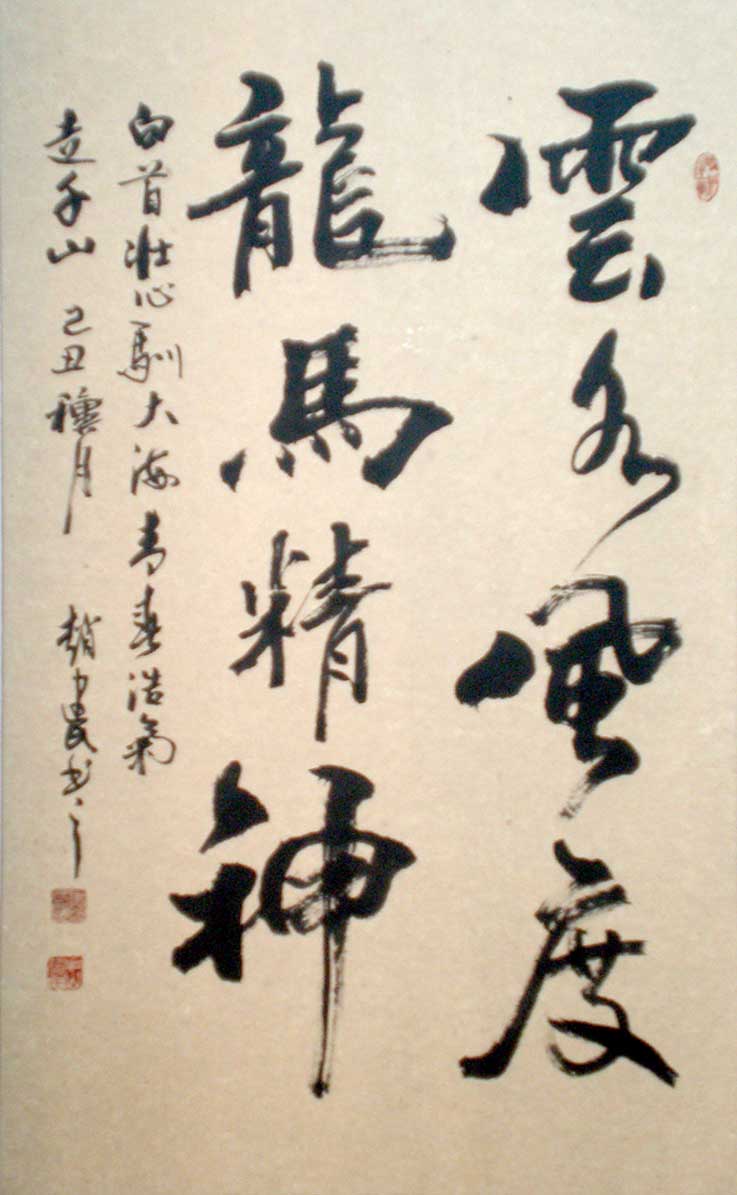 雲水風度
龍馬精神
白首壯心馴大海青春浩氣
走千山 己丑月 趙農書